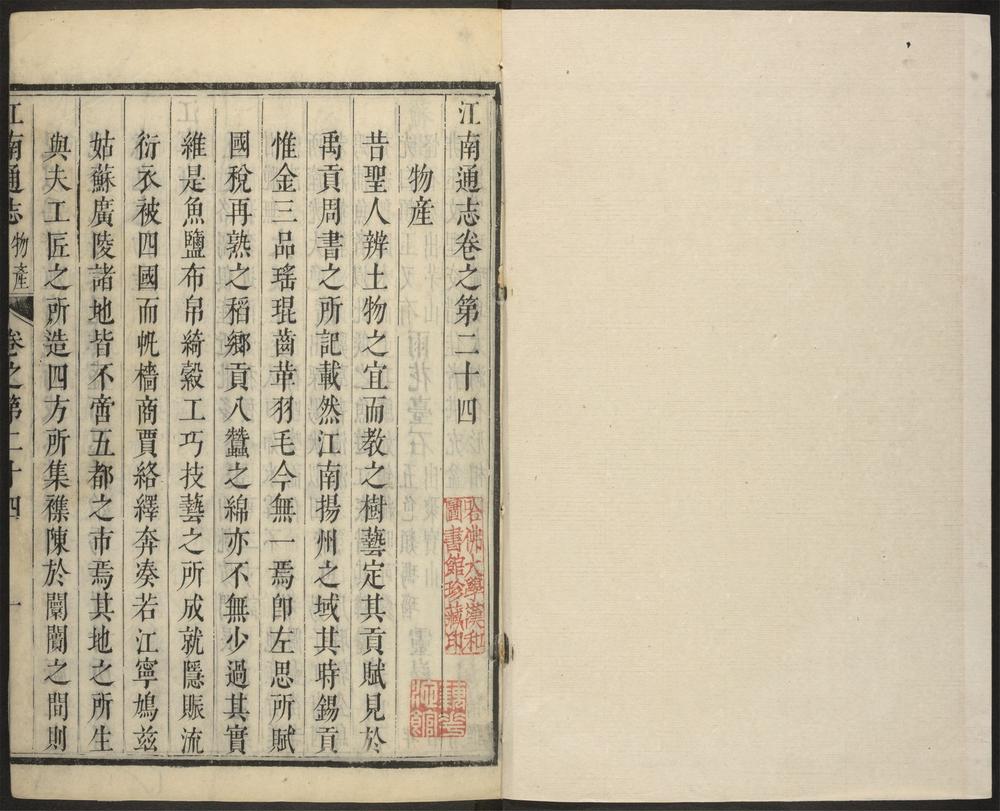 江南通志卷之第二十四
物産
昔聖人辨土物之宜而教之樹藝定其貢賦見於
禹貢周書之所記載然江南揚州之域其時錫貢
惟金三品瑤琨齒革羽毛今無一焉卽左思所賦
國稅再熟之稻鄉貢八蠶之綿亦不無少過其實
維是魚鹽布帛綺縠工巧技藝之所成就隱賑流
衍衣被四國而帆檣商賈絡繹奔凑若江寧鳩茲
姑蘇廣陵諸地皆不啻五都之市焉其地之所生
與夫工匠之所造四方所集襍陳於闤闠之間則
江南通志 物產 卷之第二十四 一
哈佛大學漢和
圖書館珍藏印